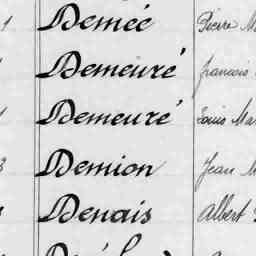 Demée Pierre
Demeuré francois
Demeuré Louis
Demion Jean
Denais Albert